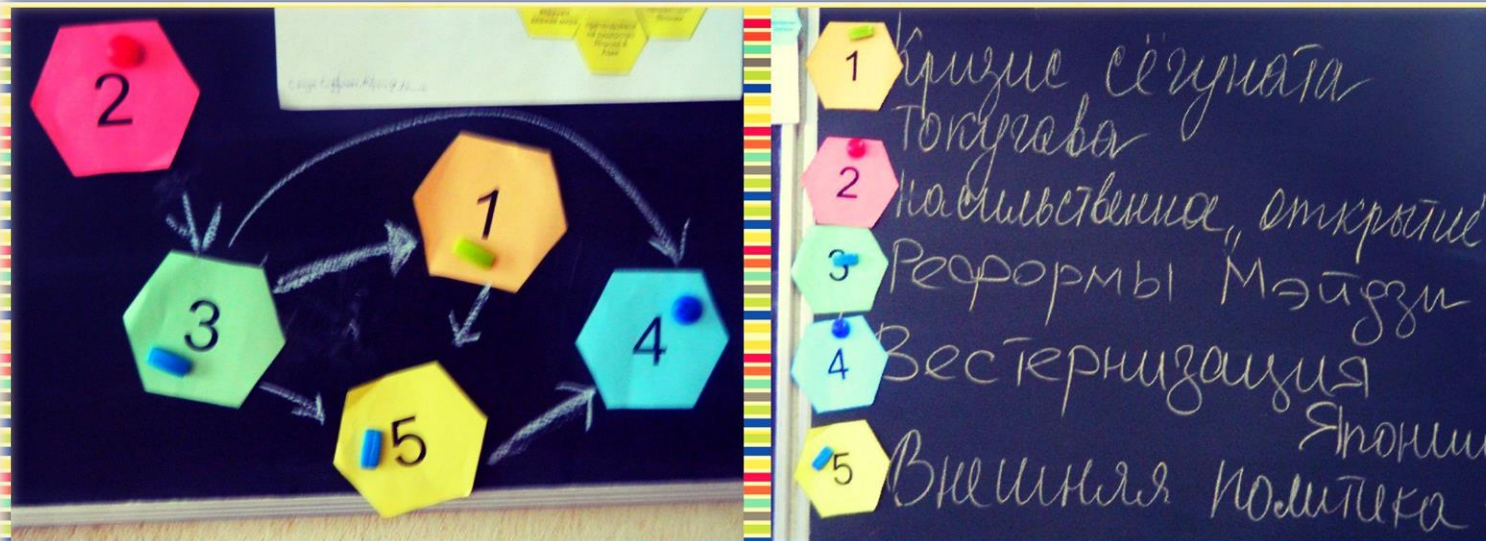 2
1
3
4
5
1 Кризис сёгуната
Токугава
2 насильственное „открытие
3 Реформы Мэйдзи
4 Вестернизация
Японии
5 Внешняя политика